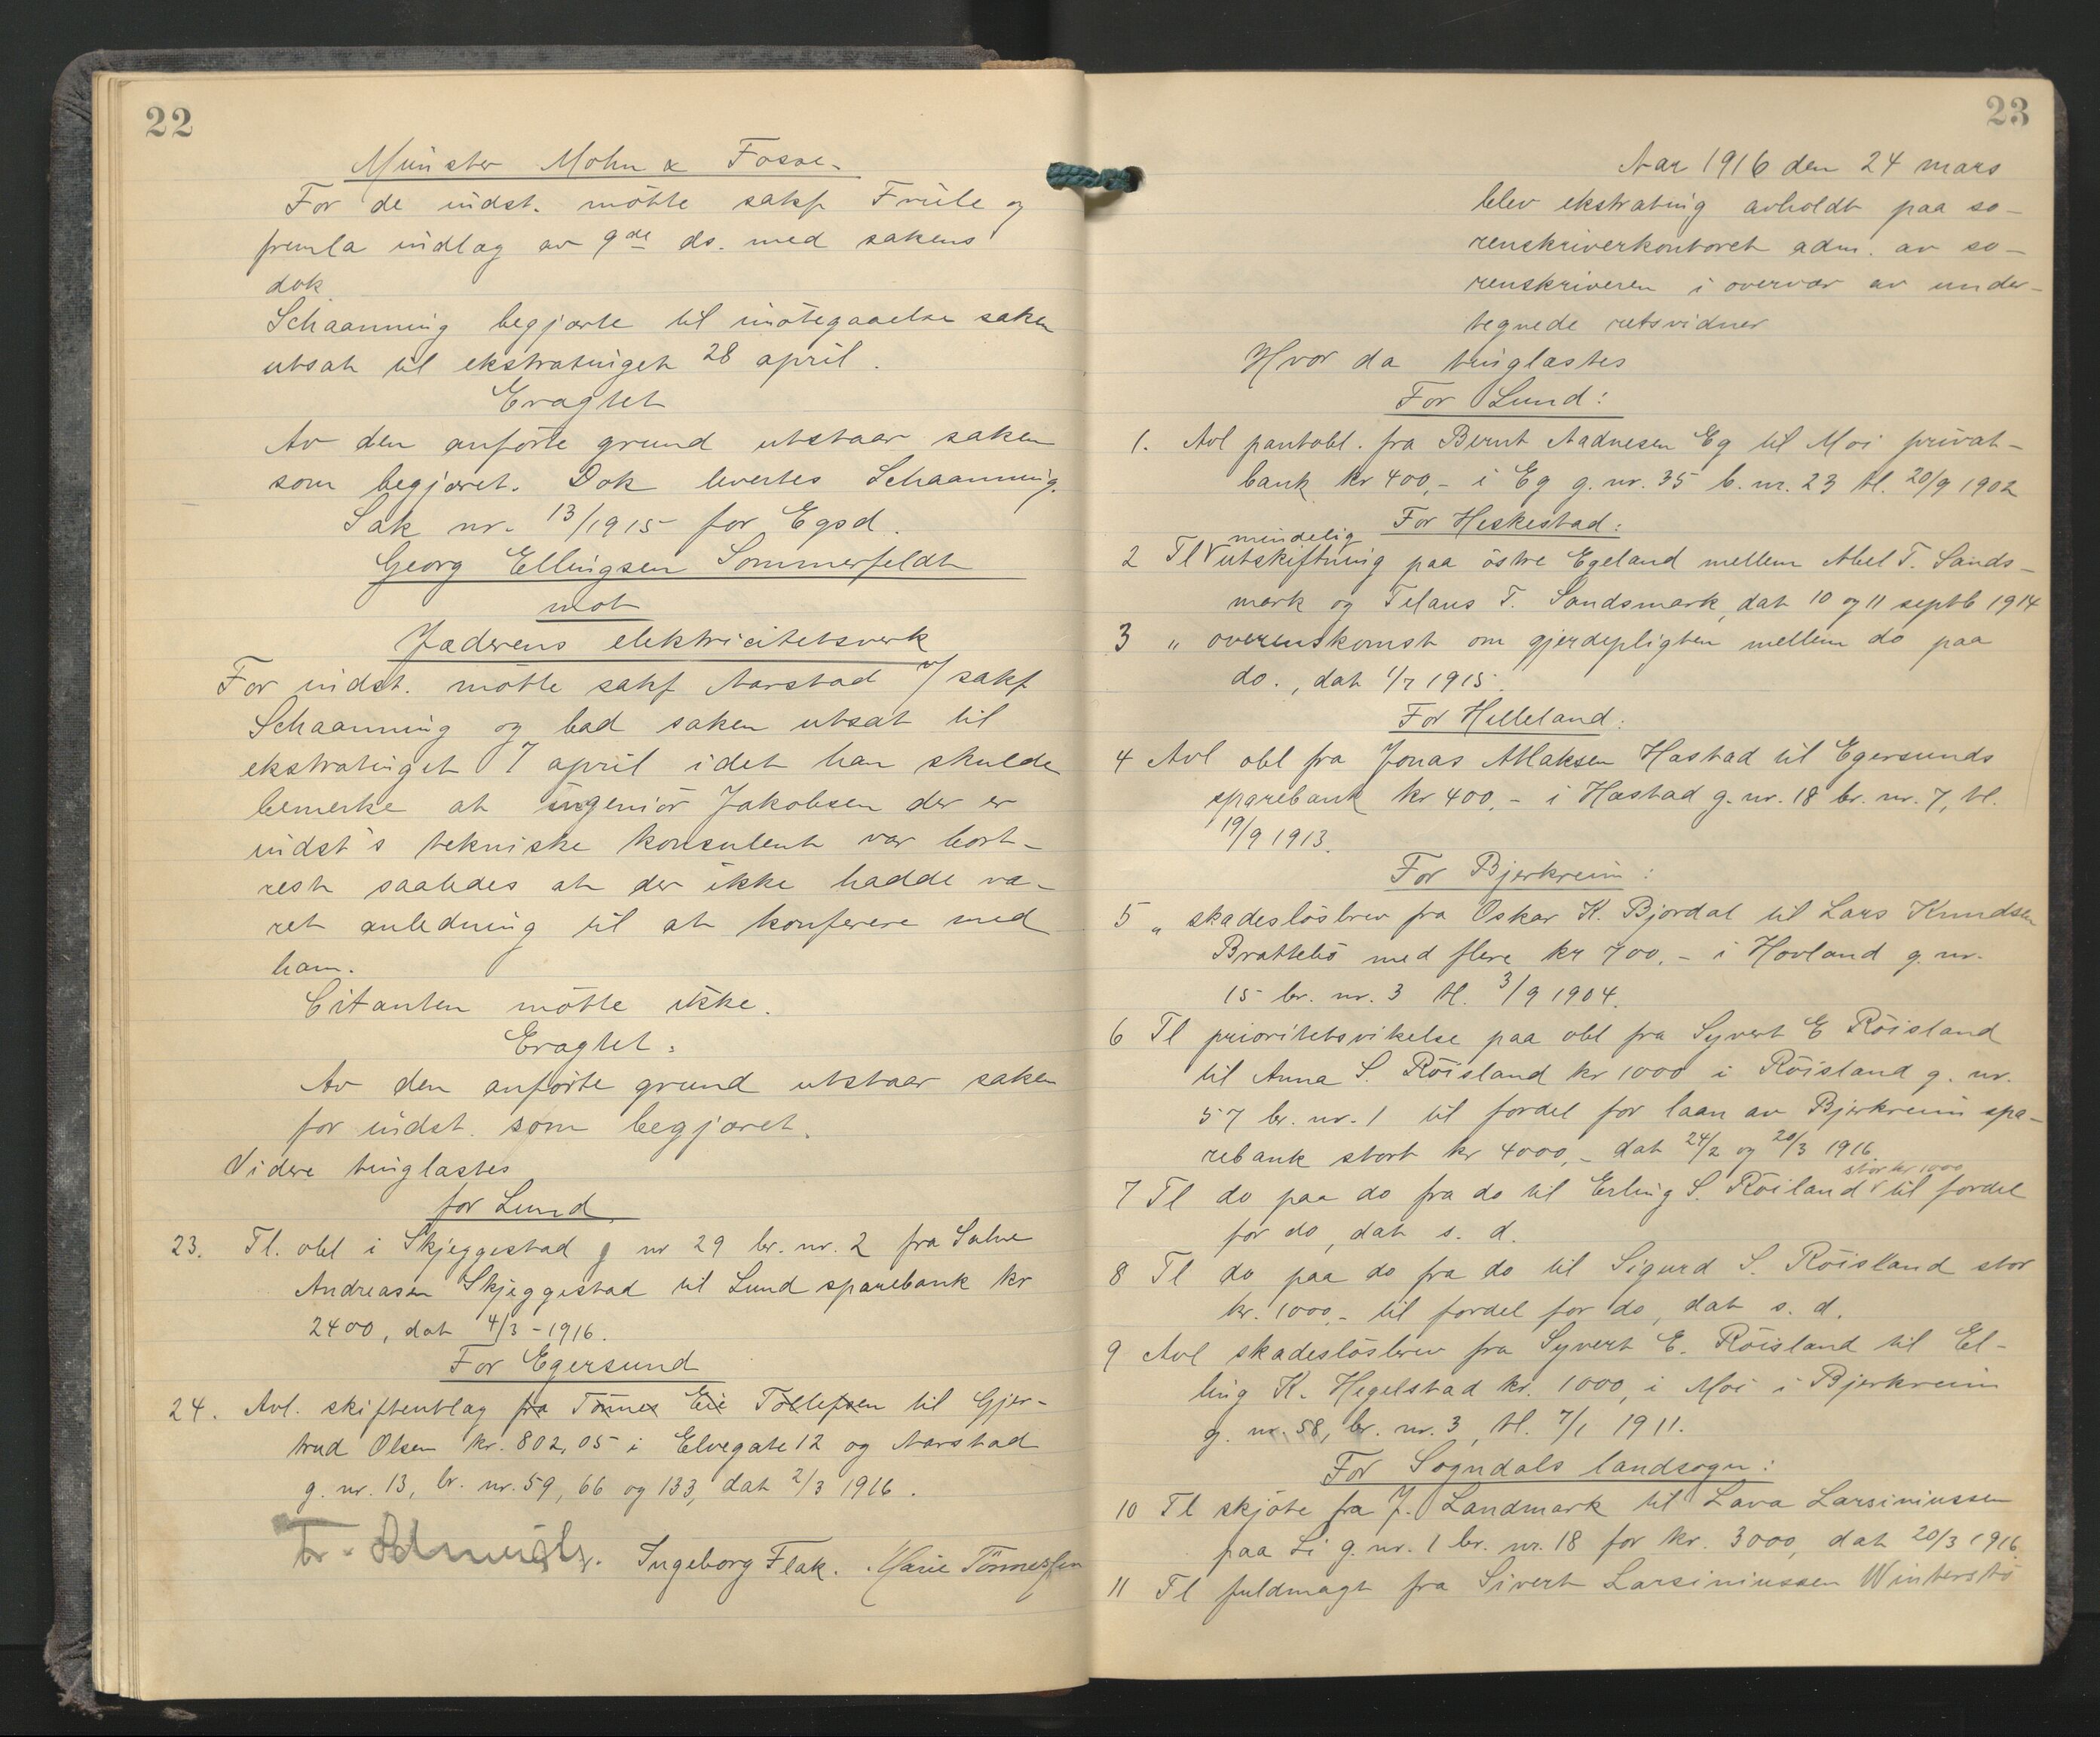 22
Münster Mohn & Fosse.
For de indst. mötte sakf Friile og
fremla indlæg av 9de ds. med sakens
dok
Schaanning begjærte til imötegaaelse saken
utsat til ekstratinget 28 april.
Eragtet
Av den anförte grund utstaar saken
som begjæret. Dok levertes Schaanning.
Sak nr. 13/1915 for Egsd.
Georg Ellingsen Sommerfeldt
mot
Jæderens elektricitetsverk
For indst. mötte sakf Aarstad v/ sakf
Schaanning og bad saken utsat til
ekstratinget 7 april idet han skulde
bemerke at ingeniör Jakobsen der er
indst's tekniske konsulent var bort-
rest saaledes at der ikke hadde væ-
ret anledning til at konferere med
ham.
Citanten mötte ikke.
Eragtet:
Av den anförte grund utstaar saken
for indst. som begjæret.
Videre tinglæstes
for Lund
23. Tl. obl i Skjeggestad g nr 29 br. nr. 2 fra Salve
Andreasen Skjeggestad til Lund sparebank kr
2400, dat 4/3 - 1916.
For Egersund
24. Avl. skifteutlæg fra Tönnes Eie Tollefsen til Gjer-
trud Olsen kr. 802,05 i Elvegate 12 og Aarstad
g. nr. 13, br. nr. 59, 66 og 133, dat 2/3 1916.
Ingeborg Flak. Marie Tönnessen
23
Aar 1916 den 24 mars
blev ekstrating avholdt paa so-
renskriverkontoret adm. av so-
renskriveren i overvær av under-
tegnede retsvidner
Hvor da tinglæstes
For Lund:
1. Avl pantobl. fra Bernt Aadnesen Eg til Moi privat-
bank kr 400,- i Eg g. nr. 35 b. nr. 23 tl. 20/9 1902
For Heskestad:
mindelig
2 Tl utskiftning paa östre Egeland mellem Abel T. Sands-
mark og Telaus T. Sandsmark, dat 10 og 11 septb 1914
3 " overenskomst om gjerdepligten mellem do paa
do., dat 1/7 1915.
For Helleland:
4 Avl obl fra Jonas Atlaksen Hæstad til Egersunds
sparebank kr 400.- i Hæstad g. nr. 18 br. nr. 7, tl.
19/9 1913.
For Bjerkreim:
5 " skadeslösbrev fra Oskar K. Bjordal til Lars Knudsen
Brattebö med flere kr 700.- i Hovland g. nr.
15 br. nr. 3 tl. 3/9 1904.
6 Tl prioritetsvikelse paa obl fra Syvert E Röisland
til Anna S. Röisland kr 1000 i Röisland g. nr.
57 br. nr. 1 til fordel for laan av Bjerkreim spa-
rebank stort kr 4000,- dat 24/2 og 20/3 1916
stor kr 1000
7 Tl do paa do fra do til Erling S. Röiland til fordel
for do, dat s. d.
8 Tl do paa do fra do til Sigurd S. Röisland stor
kr. 1000,- til fordel for do, dat s. d.
9 Avl skadeslösbrev fra Syvert E. Röisland til El-
ling K. Hegelstad kr. 1000, i Moi i Bjerkreim
g. nr. 58, br. nr. 3, tl. 7/1 1911.
For Sogndals landsogn:
10 Tl skjöte fra J. Landmark til Lava Larsiniussen
paa Li g. nr. 1 br. nr. 18 for kr. 3000, dat 20/3 1916
11 Tl fuldmagt fra Sivert Larsiniussen Winterstö